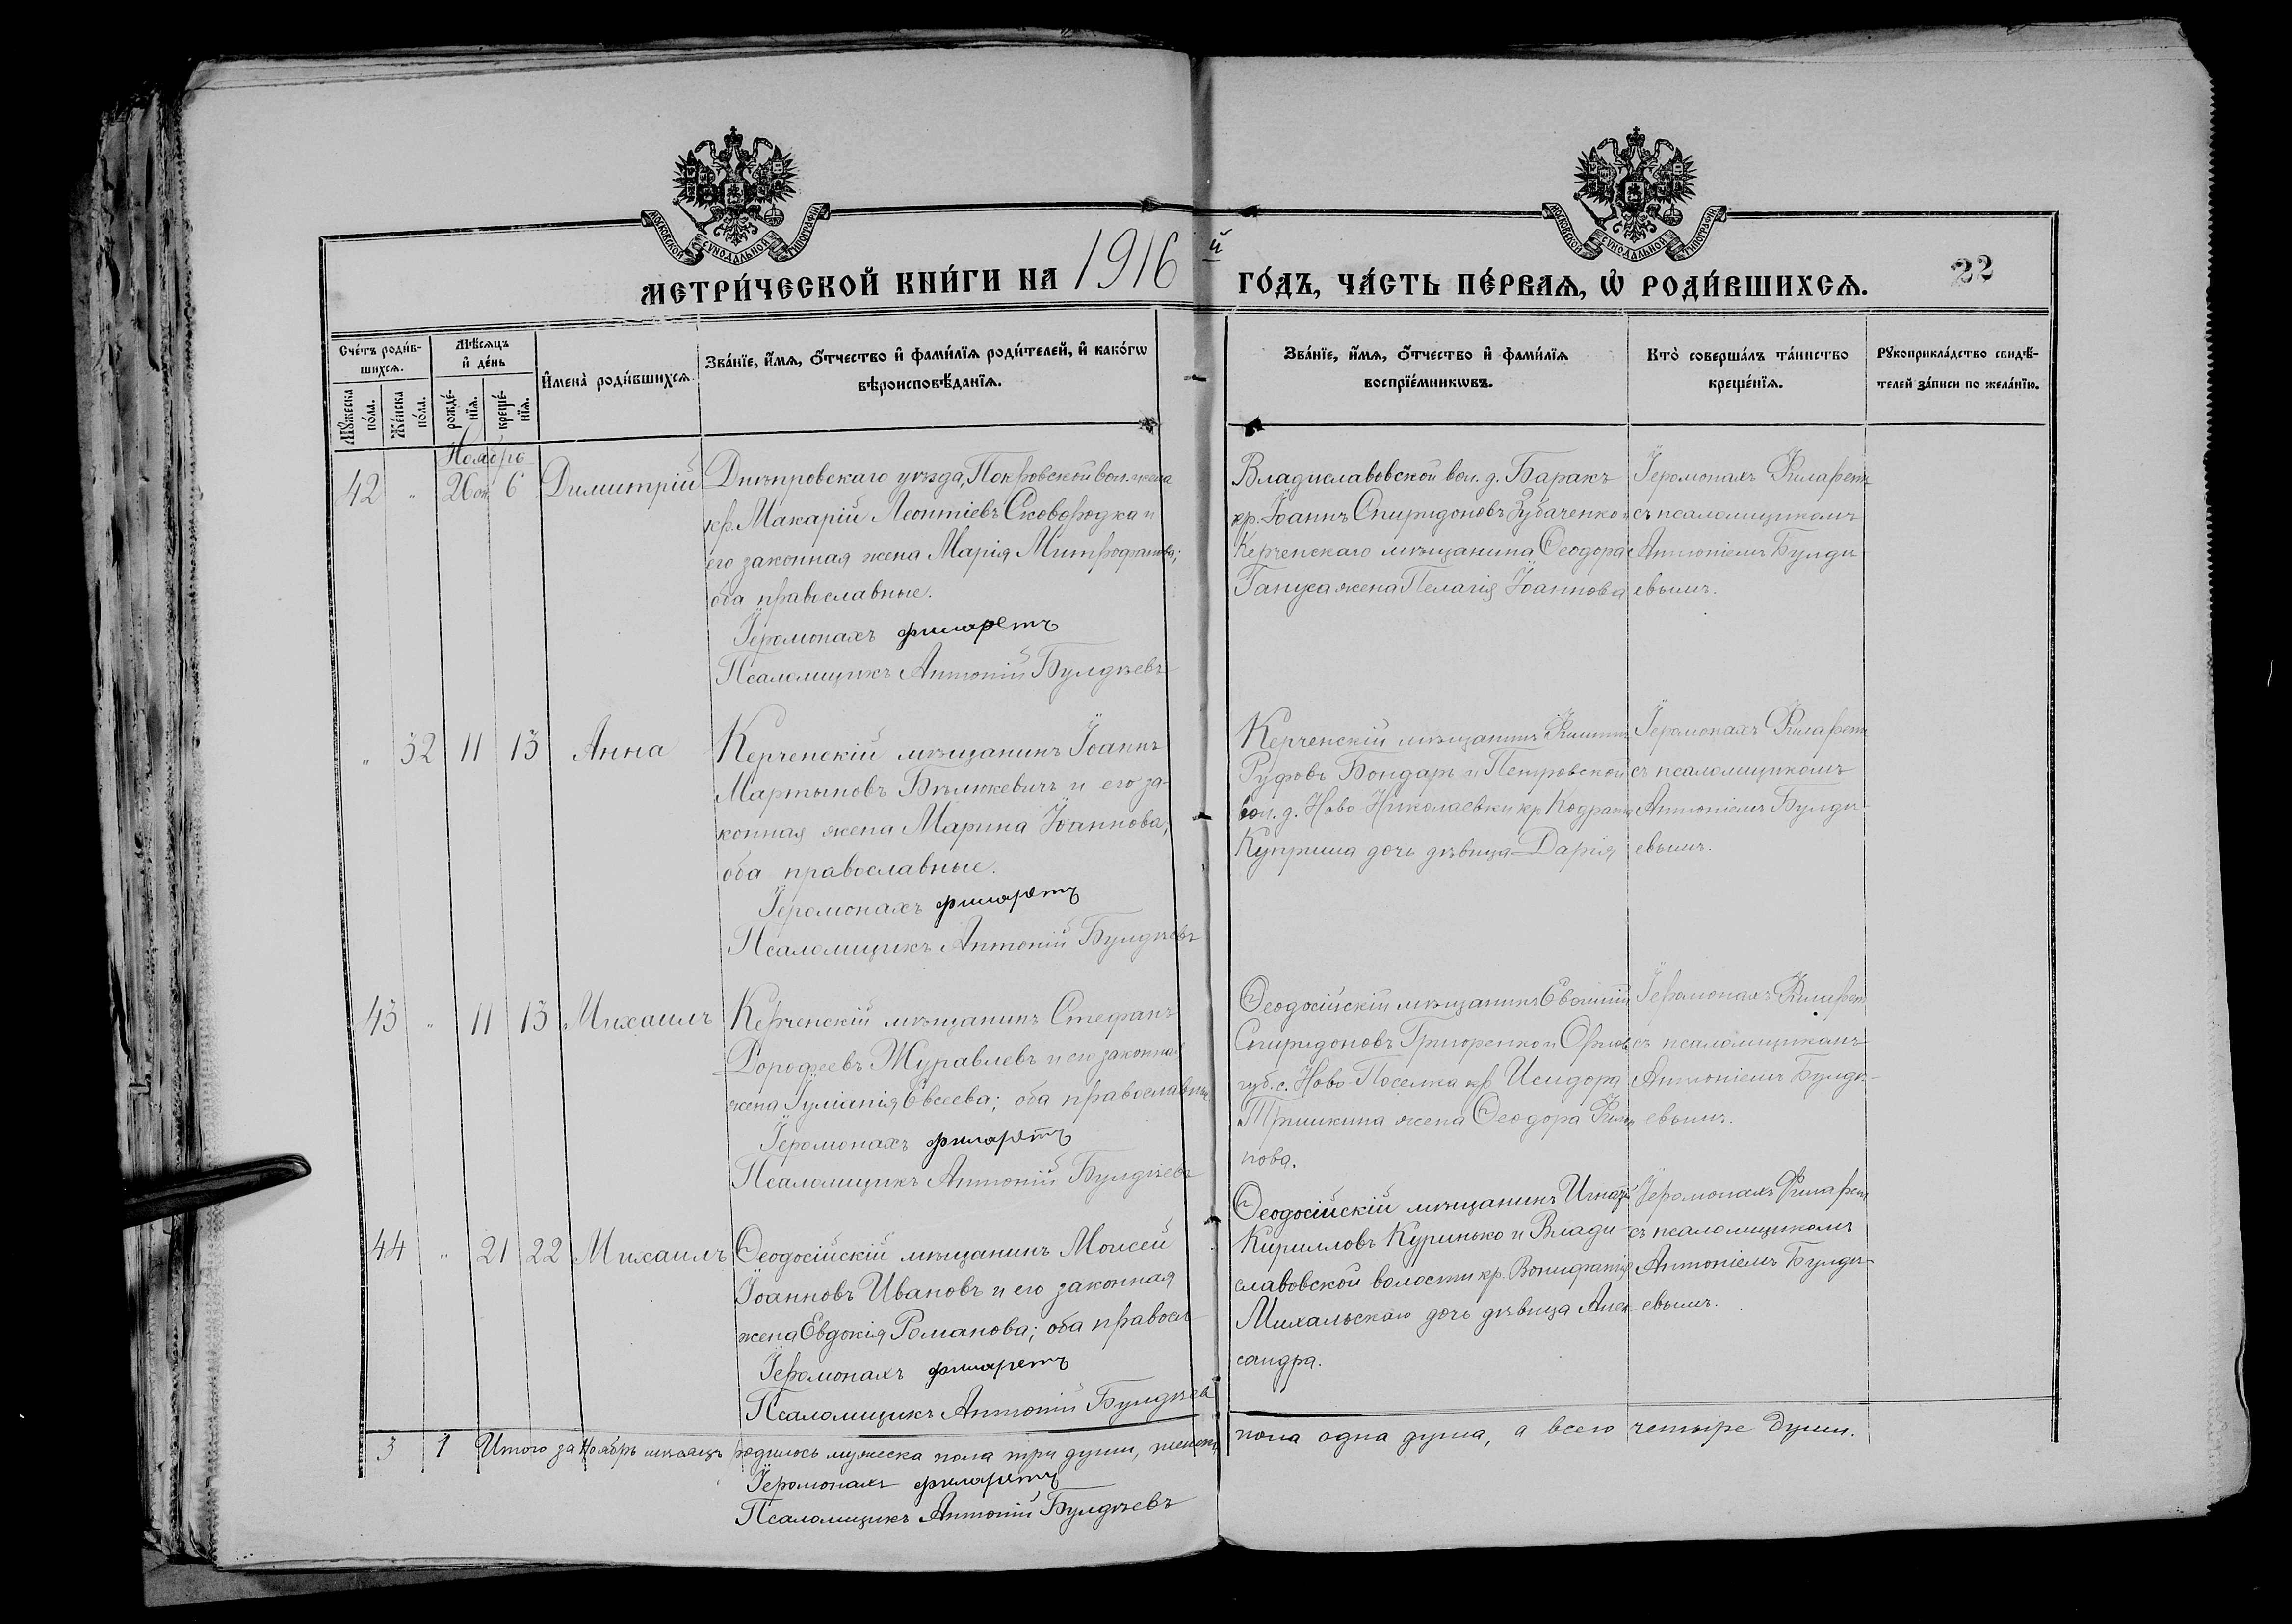 МОСКОВСКОЙ СѴНОДАЛЬНОЙ ТИПОГРАФІИ
МОСКОВСКОЙ СѴНОДАЛЬНОЙ ТИПОГРАФІИ
МЕТРИ́ЧЕСКОЙ КНИ́ГИ НА 1916 й ГО́ДЪ, ЧА́СТЬ ПЕ́РВАѦ, Ѡ҆ РОДИ́ВШИХСѦ.
22
Сче́тъ роди́в-
шихсѧ.
Мꙋ́жеска по́ла.
Же́нска по́ла.
Мѣ́сѧцъ
и҆ де́нь
рожде́-
нїѧ.
креще́-
нїѧ.
И҆мена̀ роди́вшихсѧ.
Зва́нїе, и҆́мѧ, ѻ҆́тчество и҆ фами́лїѧ роди́телей, и҆ како́гѡ
вѣроисповѣ́данїѧ.
Зва́нїе, и҆́мѧ, ѻ҆́тчество и҆ фами́лїѧ
воспрїе́мникѡвъ.
Кто̀ соверша́лъ та́инство
креще́нїѧ.
Рꙋкоприкла́дство свидѣ́-
телей за́писи по жела́нїю.
Ноябрь
42 " 26 ок 6 Димитрій
Днѣпровскаго уѣзда, Покровской вол.
кр. Макарій Леонтіевъ Сковородка и
его законная жена Марія Митрофанова;
оба православные.
Іеромонахъ Филаретъ
Псаломщикъ Антоній Булдѣевъ
Владиславовской вол. д. Баракъ
кр. Іоаннъ Спиридоновъ Зубаченко и
Керченскаго мѣщанина Ѳеодора
Гануса жена Пелагія Іоаннова
Іеромонахъ Филаретъ
съ псаломщикомъ
Антоніемъ Булдѣ-
евымъ.
" 32 11 13 Анна
Керченскій мѣщанинъ Іоаннъ
Мартыновъ Бѣлюкевичъ и его за-
конная жена Марина Іоаннова;
оба православные.
Іеромонахъ Филаретъ
Псаломщикъ Антоній Булдѣевъ
Керченскій мѣщанинъ Филиппъ
Руфовъ Бондарь и Петровской
вол. д. Ново-Николаевки кр. Кодрата
Куприна дочь дѣвица Дарія
Іеромонахъ Филаретъ
съ псаломщикомъ
Антоніемъ Булдѣ-
евымъ.
43 " 11 13 Михаилъ
Керченскій мѣщанинъ Стефанъ
Дорофеевъ Журавлевъ и его законная
жена Іуліанія Евсеева; оба православны.
Іеромонахъ Филаретъ
Псаломщикъ Антоній Булдѣевъ
Ѳеодосійскій мѣщанинъ Евфимій
Спиридоновъ Григоренко и Орлов.
губ. с. Ново-Поселка кр. Исидора
Тришкина жена Ѳеодора Филип
пова.
Іеромонахъ Филарет
съ псаломщикомъ
Антоніемъ Булдѣ-
евымъ.
44 " 21 22 Михаилъ
Ѳеодосійскій мѣщанинъ Моисей
Іоанновъ Ивановъ и его законная
жена Евдокія Романова; оба правосл
Іеромонахъ Филаретъ
Псаломщикъ Антоній Булдѣев
Ѳеодосійскій мѣщанинъ Игнатій
Кирилловъ Куринько и Влади-
славовской волости кр. Вонифатія
Михальскаго дочь дѣвица Алек-
сандра.
Іеромонахъ Филарет
съ псаломщикомъ
Антоніемъ Булдѣ-
евымъ.
3 1 Итого за Ноябрь мѣсяцъ родилось мужеска пола три души, женск. пола одна душа, а всего четыре души.
Іеромонахъ Филаретъ
Псаломщикъ Антоній Булдѣевъ